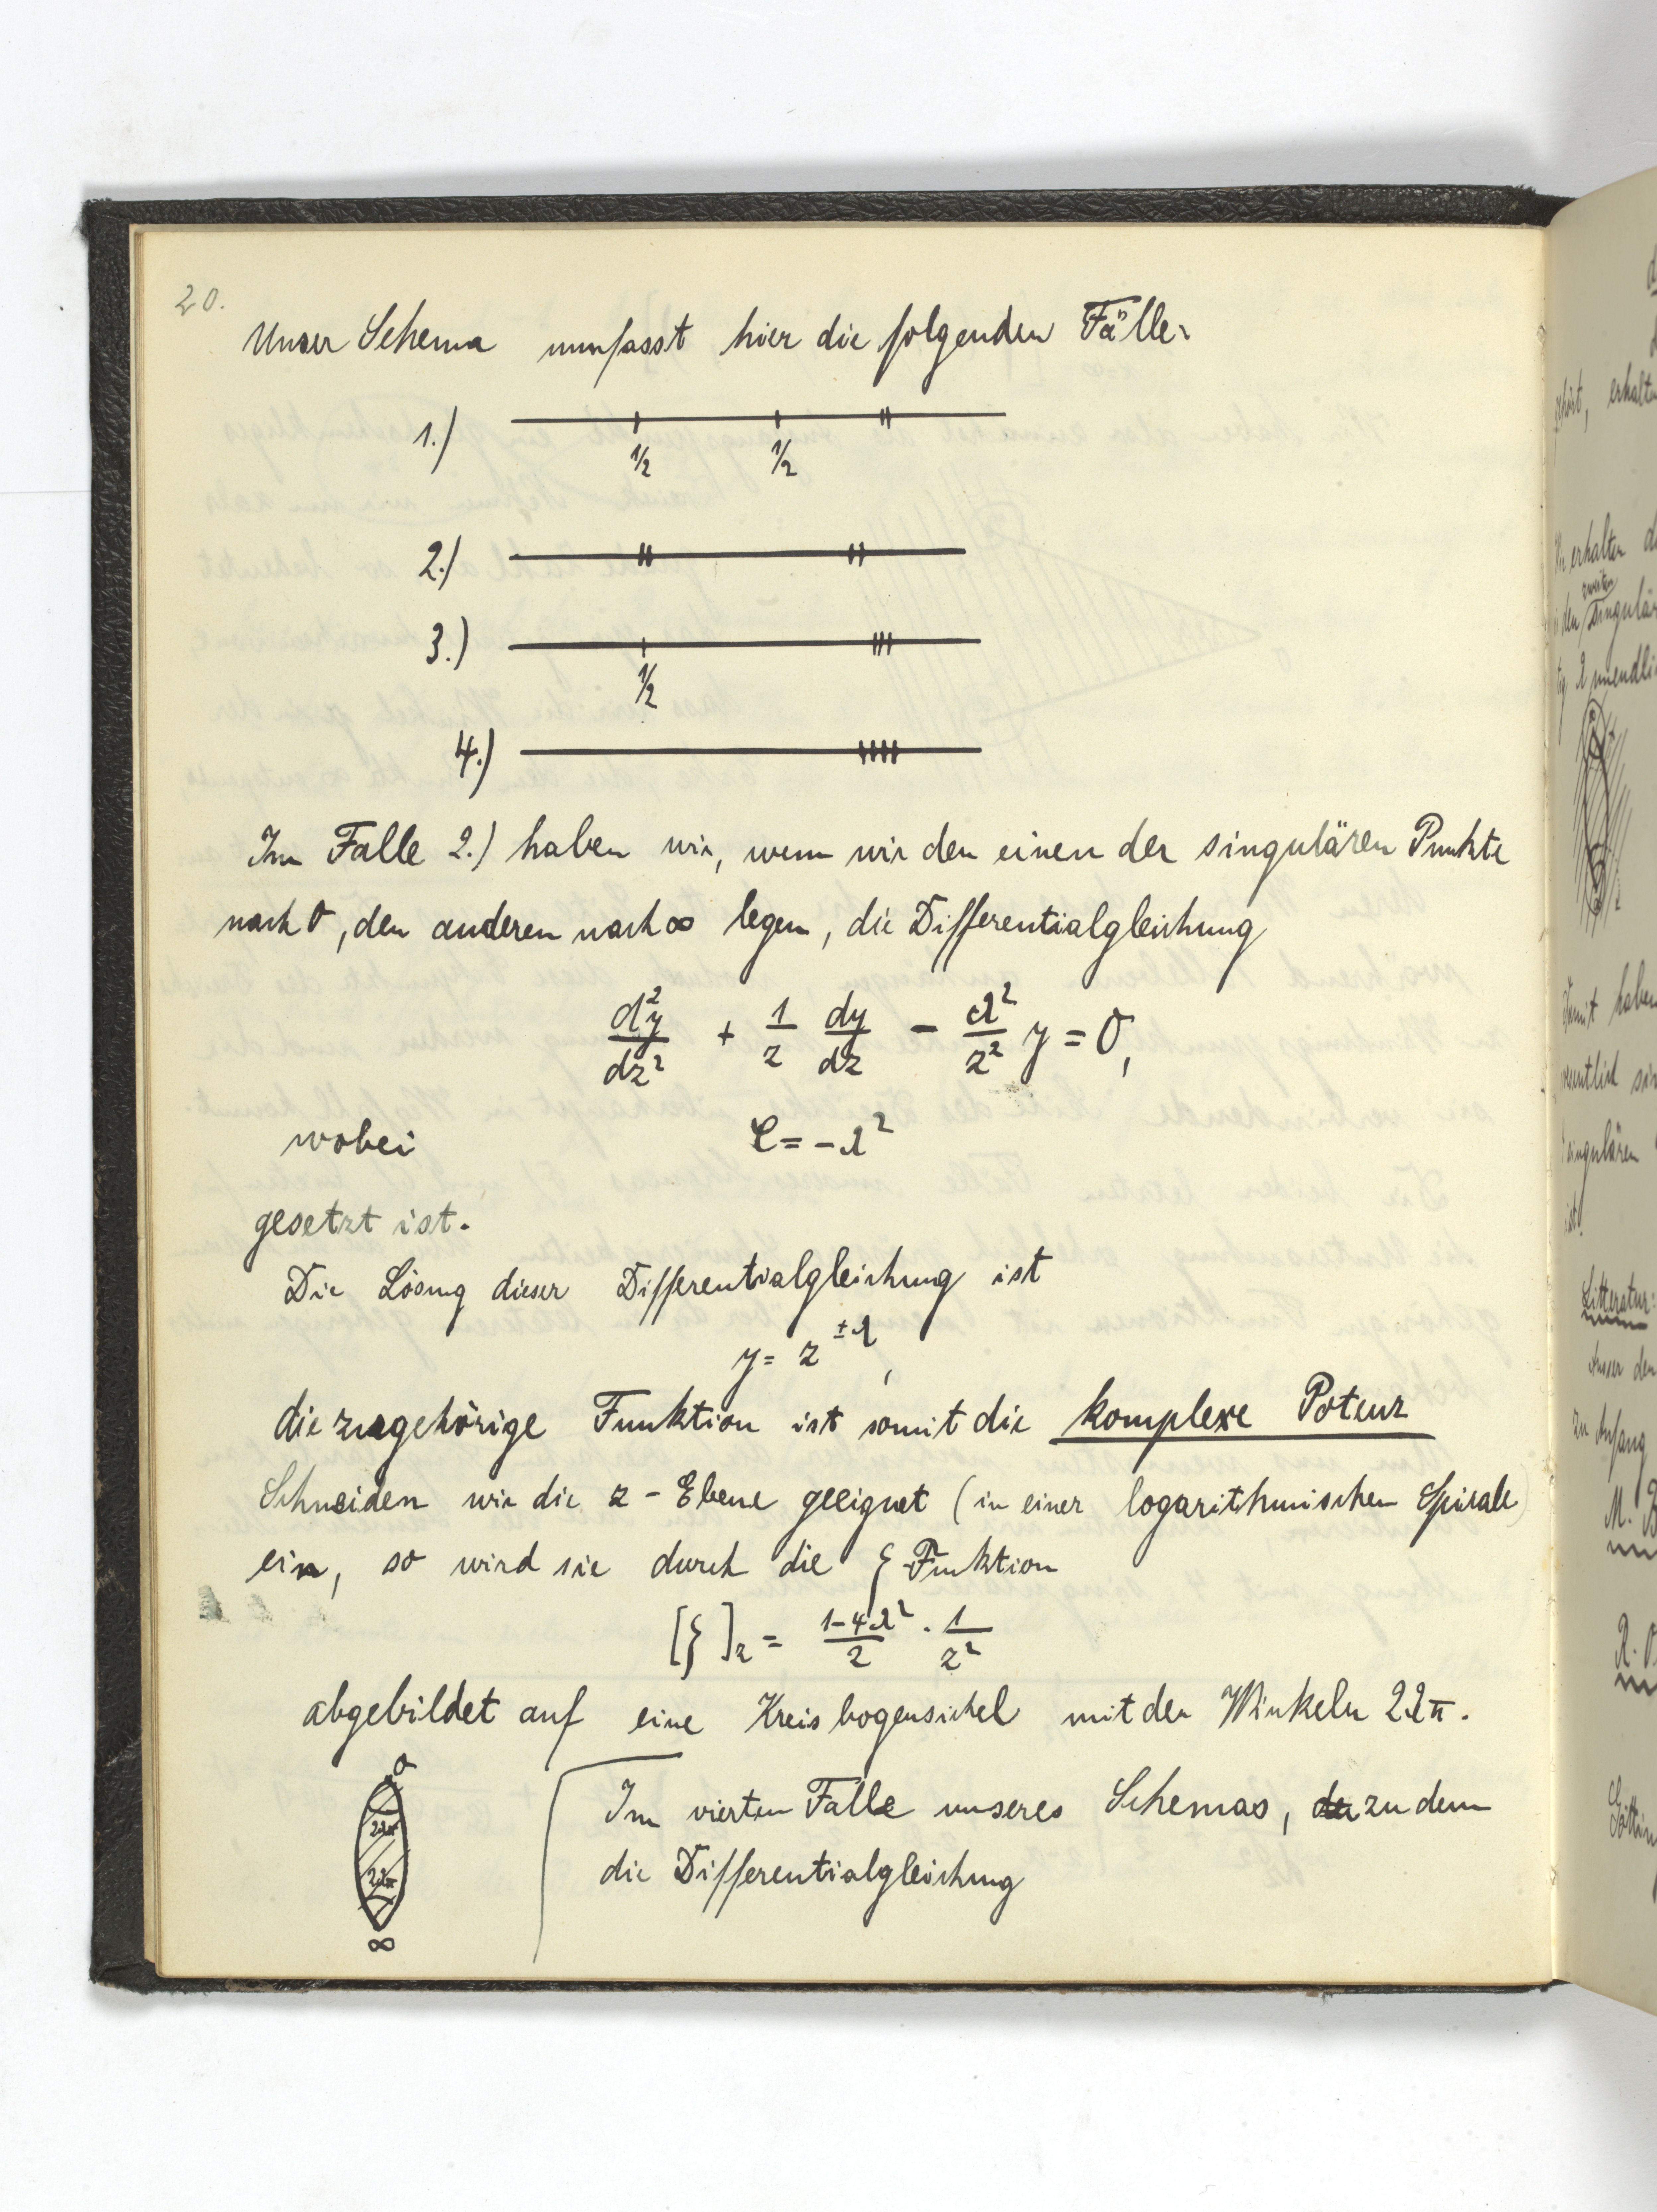 20.
Unser Schema umfasst hier die folgenden Fälle:
1.)
1/2 1/2
2.)
3.)
1/2
4.)
Im Falle 2.) haben wir, wenn wir den einen der singulären Punkte
nach 0, den anderen nach ∞ legen, die Differentialgleichung
d²y/dz² + 1/z dy/dz - λ²/z² y = 0,
wobei C = -λ²
gesetzt ist.
Die Lösung dieser Differentialgleichung ist
y = z^±λ,
die zugehörige Funktion ist somit die komplexe Potenz
Schneiden wir die z-Ebene geeignet (in einer logarithmischen Spirale)
ein, so wird sie durch die ζ Funktion
[ζ]z = (1-4λ²)/2 · 1/z²
abgebildet auf eine Kreisbogensichel mit den Winkeln 2λπ.
0
2λπ
2λπ
∞
Im vierten Falle unseres Schemas, zu dem
die Differentialgleichung
erhalten
zweiten
Litteratur:
Ausser den
zu Anfang